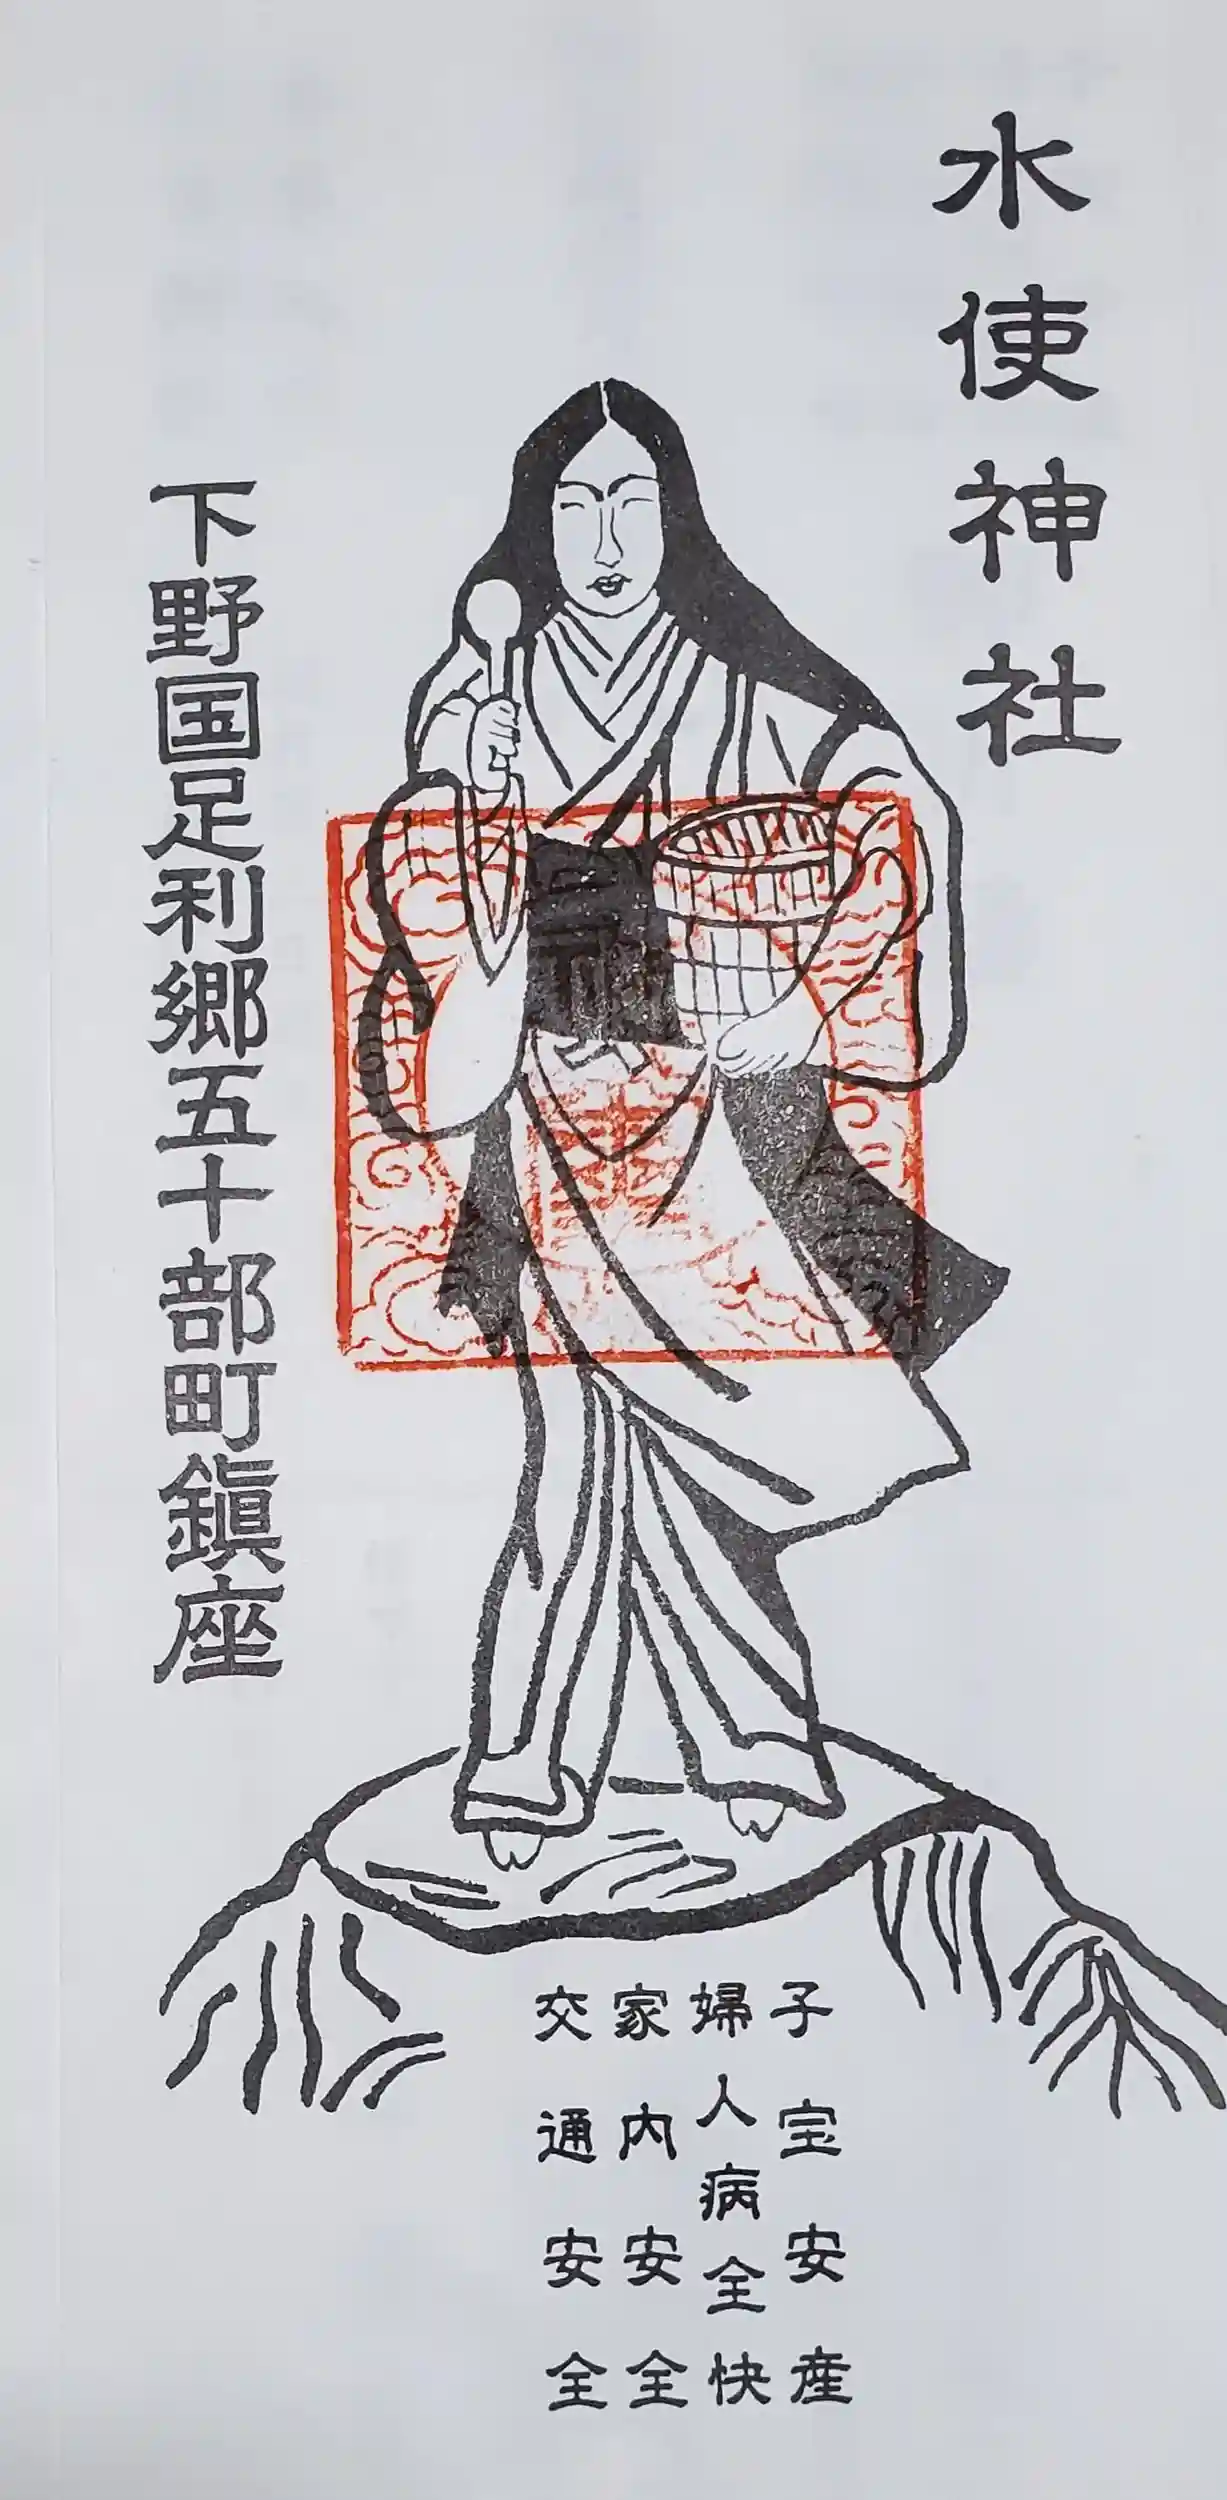 水使神社
子宝安産
婦人病全快
家内安全
交通安全
下野国足利郷五十部町鎮座